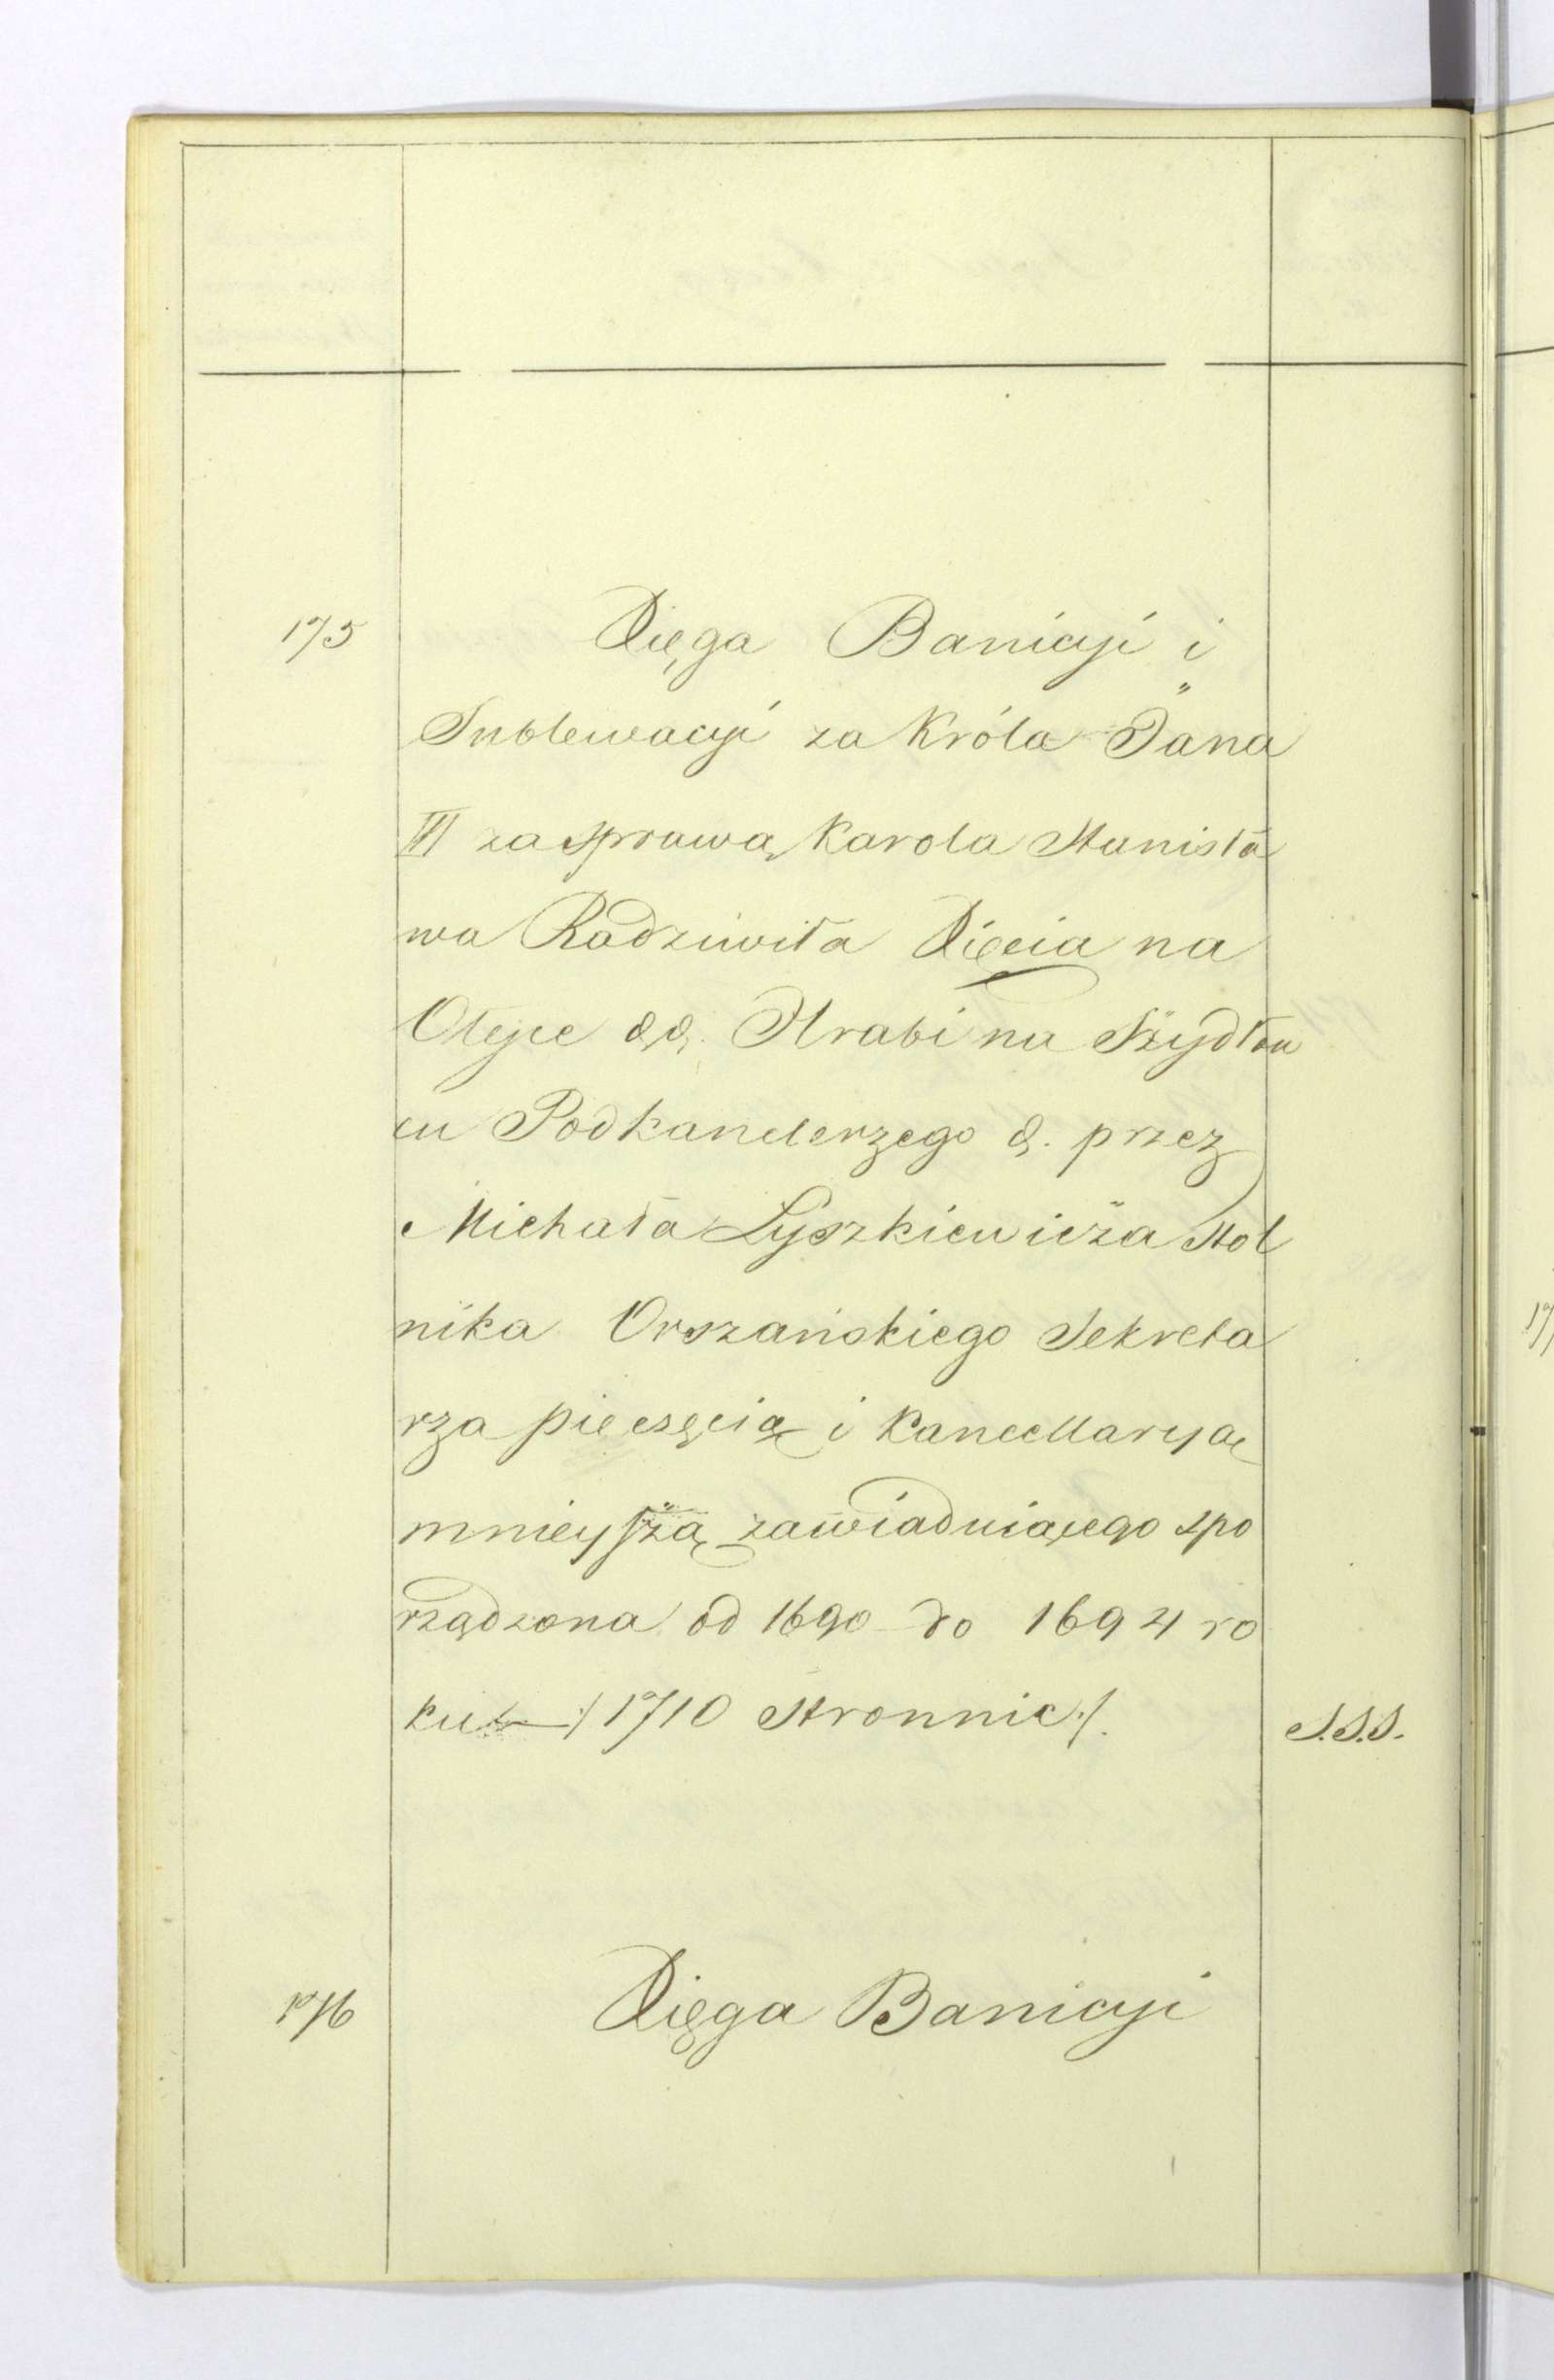 175 Xięga Banicyi i
Sublewacyi za Króla Jana
III za sprawą Karola Stanisła
wa Radziwiła Xięcia na
Ołyce &c&c. Hrabi na Szydłow
cu Podkanclerzego &c. przez
Michała Łyszkiewicza Stol
nika Orszańskiego Sekreta
rza pieczęcią i Kancellaryą
mnieyszą zawiaduiącego spo
rządzona od 1690 do 1694 ro
ku /: 1710 Stronnic :/. S.S.S.
176 Xięga Banicyi